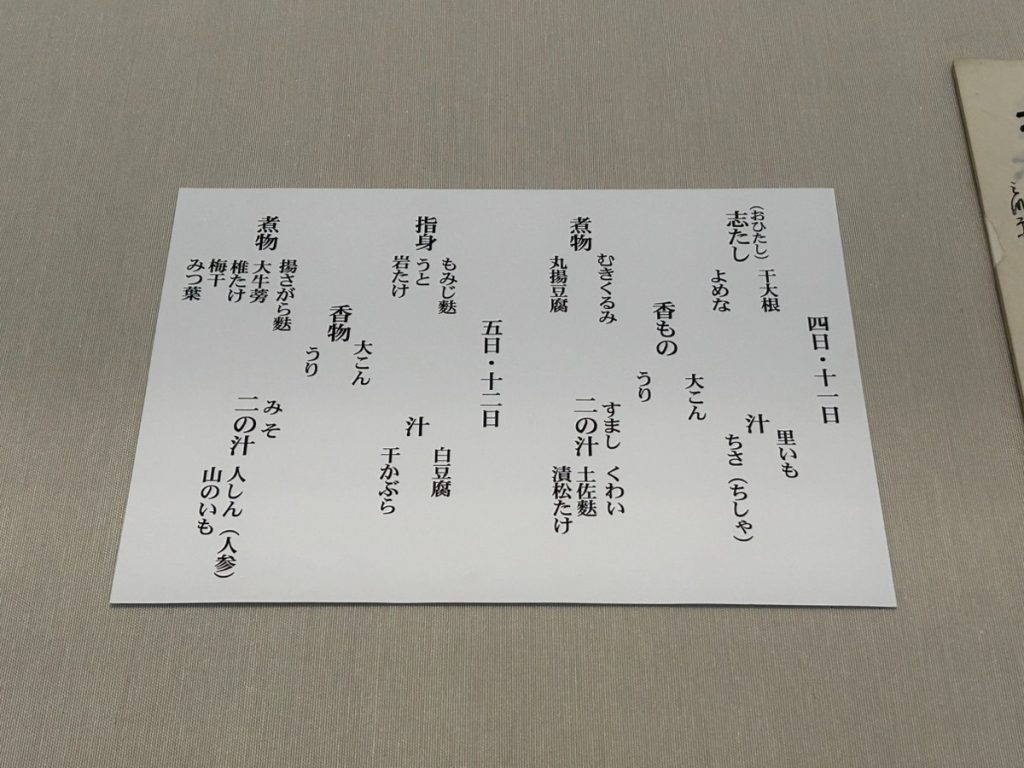 四日・十一日
(おひたし)
志たし
干大根
よめな
汁
里いも
ちさ(ちしゃ)
香もの
大こん
うり
煮物
むきくるみ
丸揚豆腐
すまし
二の汁
くわい
土佐麩
漬松たけ
五日・十二日
指身
もみじ麩
うと
岩たけ
汁
白豆腐
干かぶら
香物
大こん
うり
煮物
揚さがら麩
大牛蒡
椎たけ
梅干
みつ葉
みそ
二の汁
人しん(人参)
山のいも